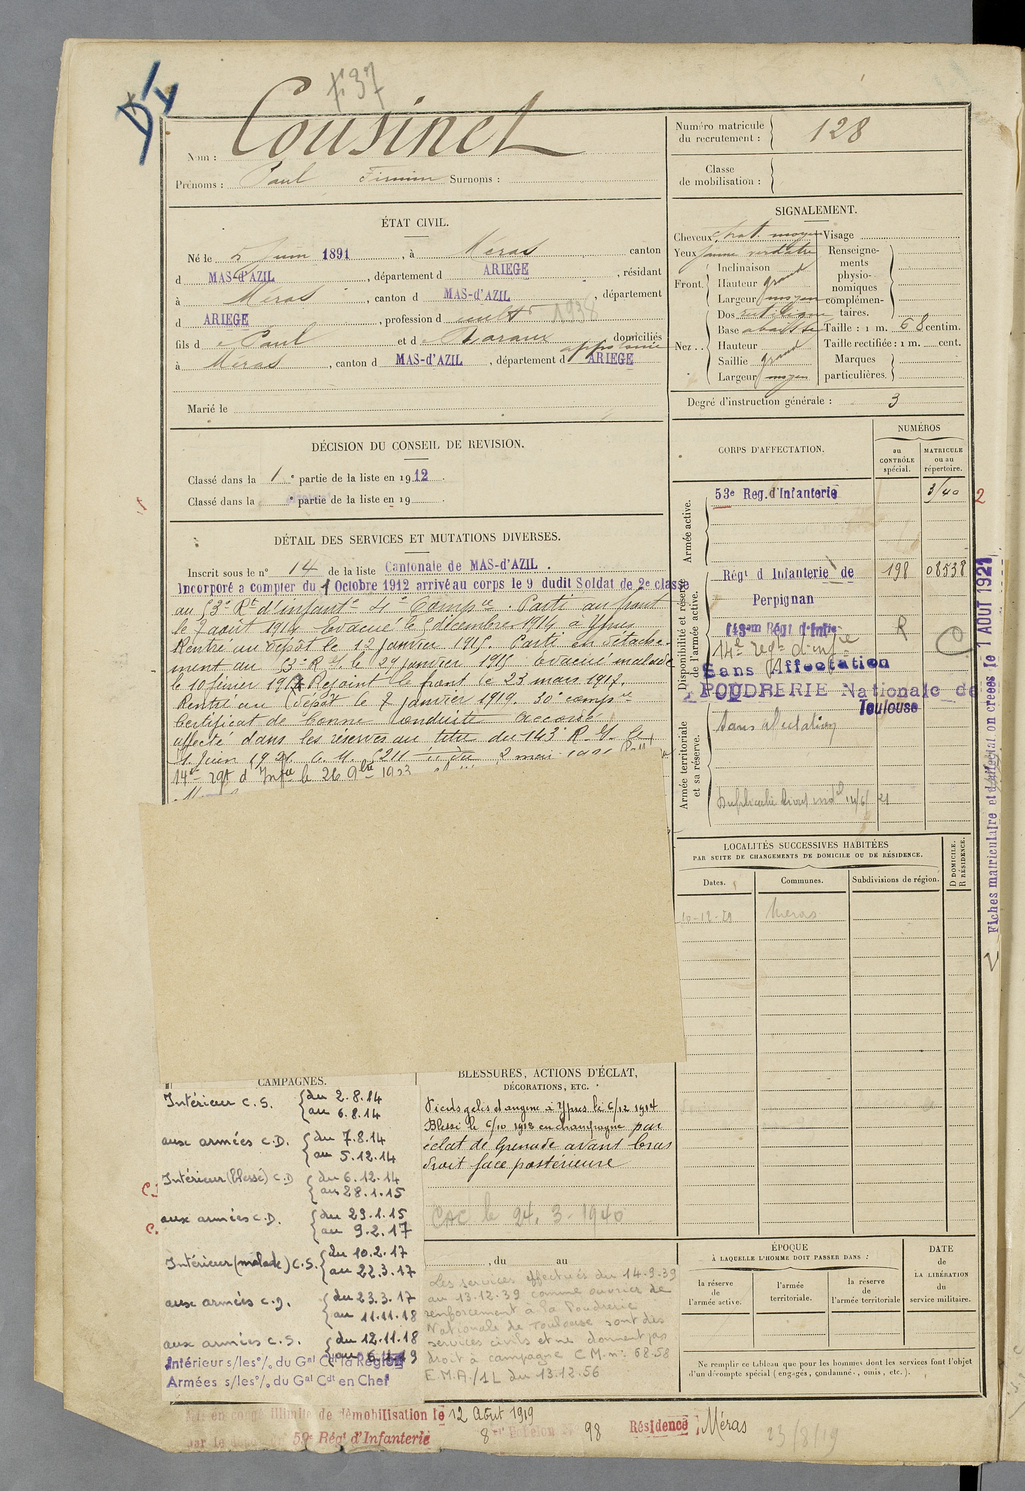 F 37
Cousinet
Nom :
Prénoms : Paul Firmin Surnoms :
ÉTAT CIVIL.
Né le 5 Juin 1891, à Méras canton
d MAS-d'AZIL, département d ARIEGE, résidant
à Méras, canton d MAS-d'AZIL, département
d ARIEGE, profession de cultr 1938
fils de Paul et de domiciliés
à Méras, canton d MAS-d'AZIL, département d ARIEGE
Marié le
DÉCISION DU CONSEIL DE REVISION.
Classé dans la 1e partie de la liste en 1912.
Classé dans la e partie de la liste en 19
DÉTAIL DES SERVICES ET MUTATIONS DIVERSES.
Inscrit sous le n° 14 de la liste Cantonale de MAS-d'AZIL.
Incorporé a compter du 1 Octobre 1912 arrivé au corps le 9 dudit Soldat de 2e classe
au 53e Rt d'infantie 4e Compie. Parti au front
le 7 août 1914. Evacué le 5 décembre 1914 à Ypres
Rentré au dépôt le 12 janvier 1915. Parti en détache-
ment au 53e R.I. le 29 janvier 1915 Evacué malade
le 10 février 1917 Rejoint le front le 23 mars 1917.
Rentré au dépôt le 7 janvier 1919. 30e compie
Certificat de bonne conduite accordé.
affecté dans les réserves au titre du 143e R.I. le
1 Juin 1921 mai
14e regt d'Infie le 26 9bre 1923
Numéro matricule du recrutement : 128
Classe de mobilisation :
SIGNALEMENT.
Cheveux chat. moyen Visage
Yeux jaune verdâtre
Front. Inclinaison
Hauteur grand
Largeur moyen
Nez.. Dos rectiligne
Base abaissée
Hauteur
Saillie grand
Largeur moyen
Renseignements physionomiques complémentaires.
Taille : 1 m. 68 centim.
Taille rectifiée : 1 m. cent.
Marques particulières.
Degré d'instruction générale : 3
CORPS D'AFFECTATION.
NUMÉROS
au CONTRÔLE spécial.
MATRICULE ou au répertoire.
Armée active.
53e Reg. d'Infanterie 3140
2
Disponibilité et réserve de l'armée active.
Régt d Infanterie de Perpignan 198 08538
143em Régt d'Infie R
14e regt d'infie
C
Sans Affectation
POUDRERIE Nationale de
Toulouse
Armée territoriale et sa réserve.
Sans affectation
Duplicata livret indel 14/6/21
Fiches matriculaire et d'affectation creées le 1 AOUT 1921
LOCALITÉS SUCCESSIVES HABITÉES
PAR SUITE DE CHANGEMENTS DE DOMICILE OU DE RÉSIDENCE.
Dates. Communes. Subdivisions de région. D DOMICILE. R RÉSIDENCE.
Méras
CAMPAGNES.
Intérieur C.S. du 2.8.14
au 6.8.14
aux armées C.D. du 7.8.14
au 5.12.14
Intérieur (blessé) C.D du 6.12.14
au 28.1.15
aux armées C.D. du 29.1.15
au 9.2.17
Intérieur (malade) C.S. du 10.2.17
au 22.3.17
aux armées C.D. du 23.3.17
au 11.11.18
aux armées C.S. du 12.11.18
Intérieur s/les% du Gal Ct la Région
Armées s/les% du Gal Cdt en Chef
BLESSURES, ACTIONS D'ÉCLAT,
DÉCORATIONS, ETC.
Pieds gelés et angine à Ypres le 6/12 1914
Blessé le 6/10 1915 en champagne par
éclat de Grenade avant bras
droit face postérieure
CAC le 24.3-1940
, du au
Les services effectués du 14-9-39
au 13.12.39 comme ouvrier de
renforcement à la Poudrerie
Nationale de Toulouse sont des
services civils et ne donnent pas
droit à campagne C.M. n° 6858
E.M.A./1L du 13.12.56
ÉPOQUE
À LAQUELLE L'HOMME DOIT PASSER DANS :
la réserve de l'armée active.
l'armée territoriale.
la réserve de l'armée territoriale
DATE de LA LIBÉRATION du service militaire.
Ne remplir ce tableau que pour les hommes dont les services font l'objet
d'un décompte spécial (engagés, condamné, omis, etc.).
Mis en congé illimité de démobilisation le 12 Août 1919
par le 59e Régt d'Infanterie 8 Echelon 98 Résidence, Méras 23/8/19